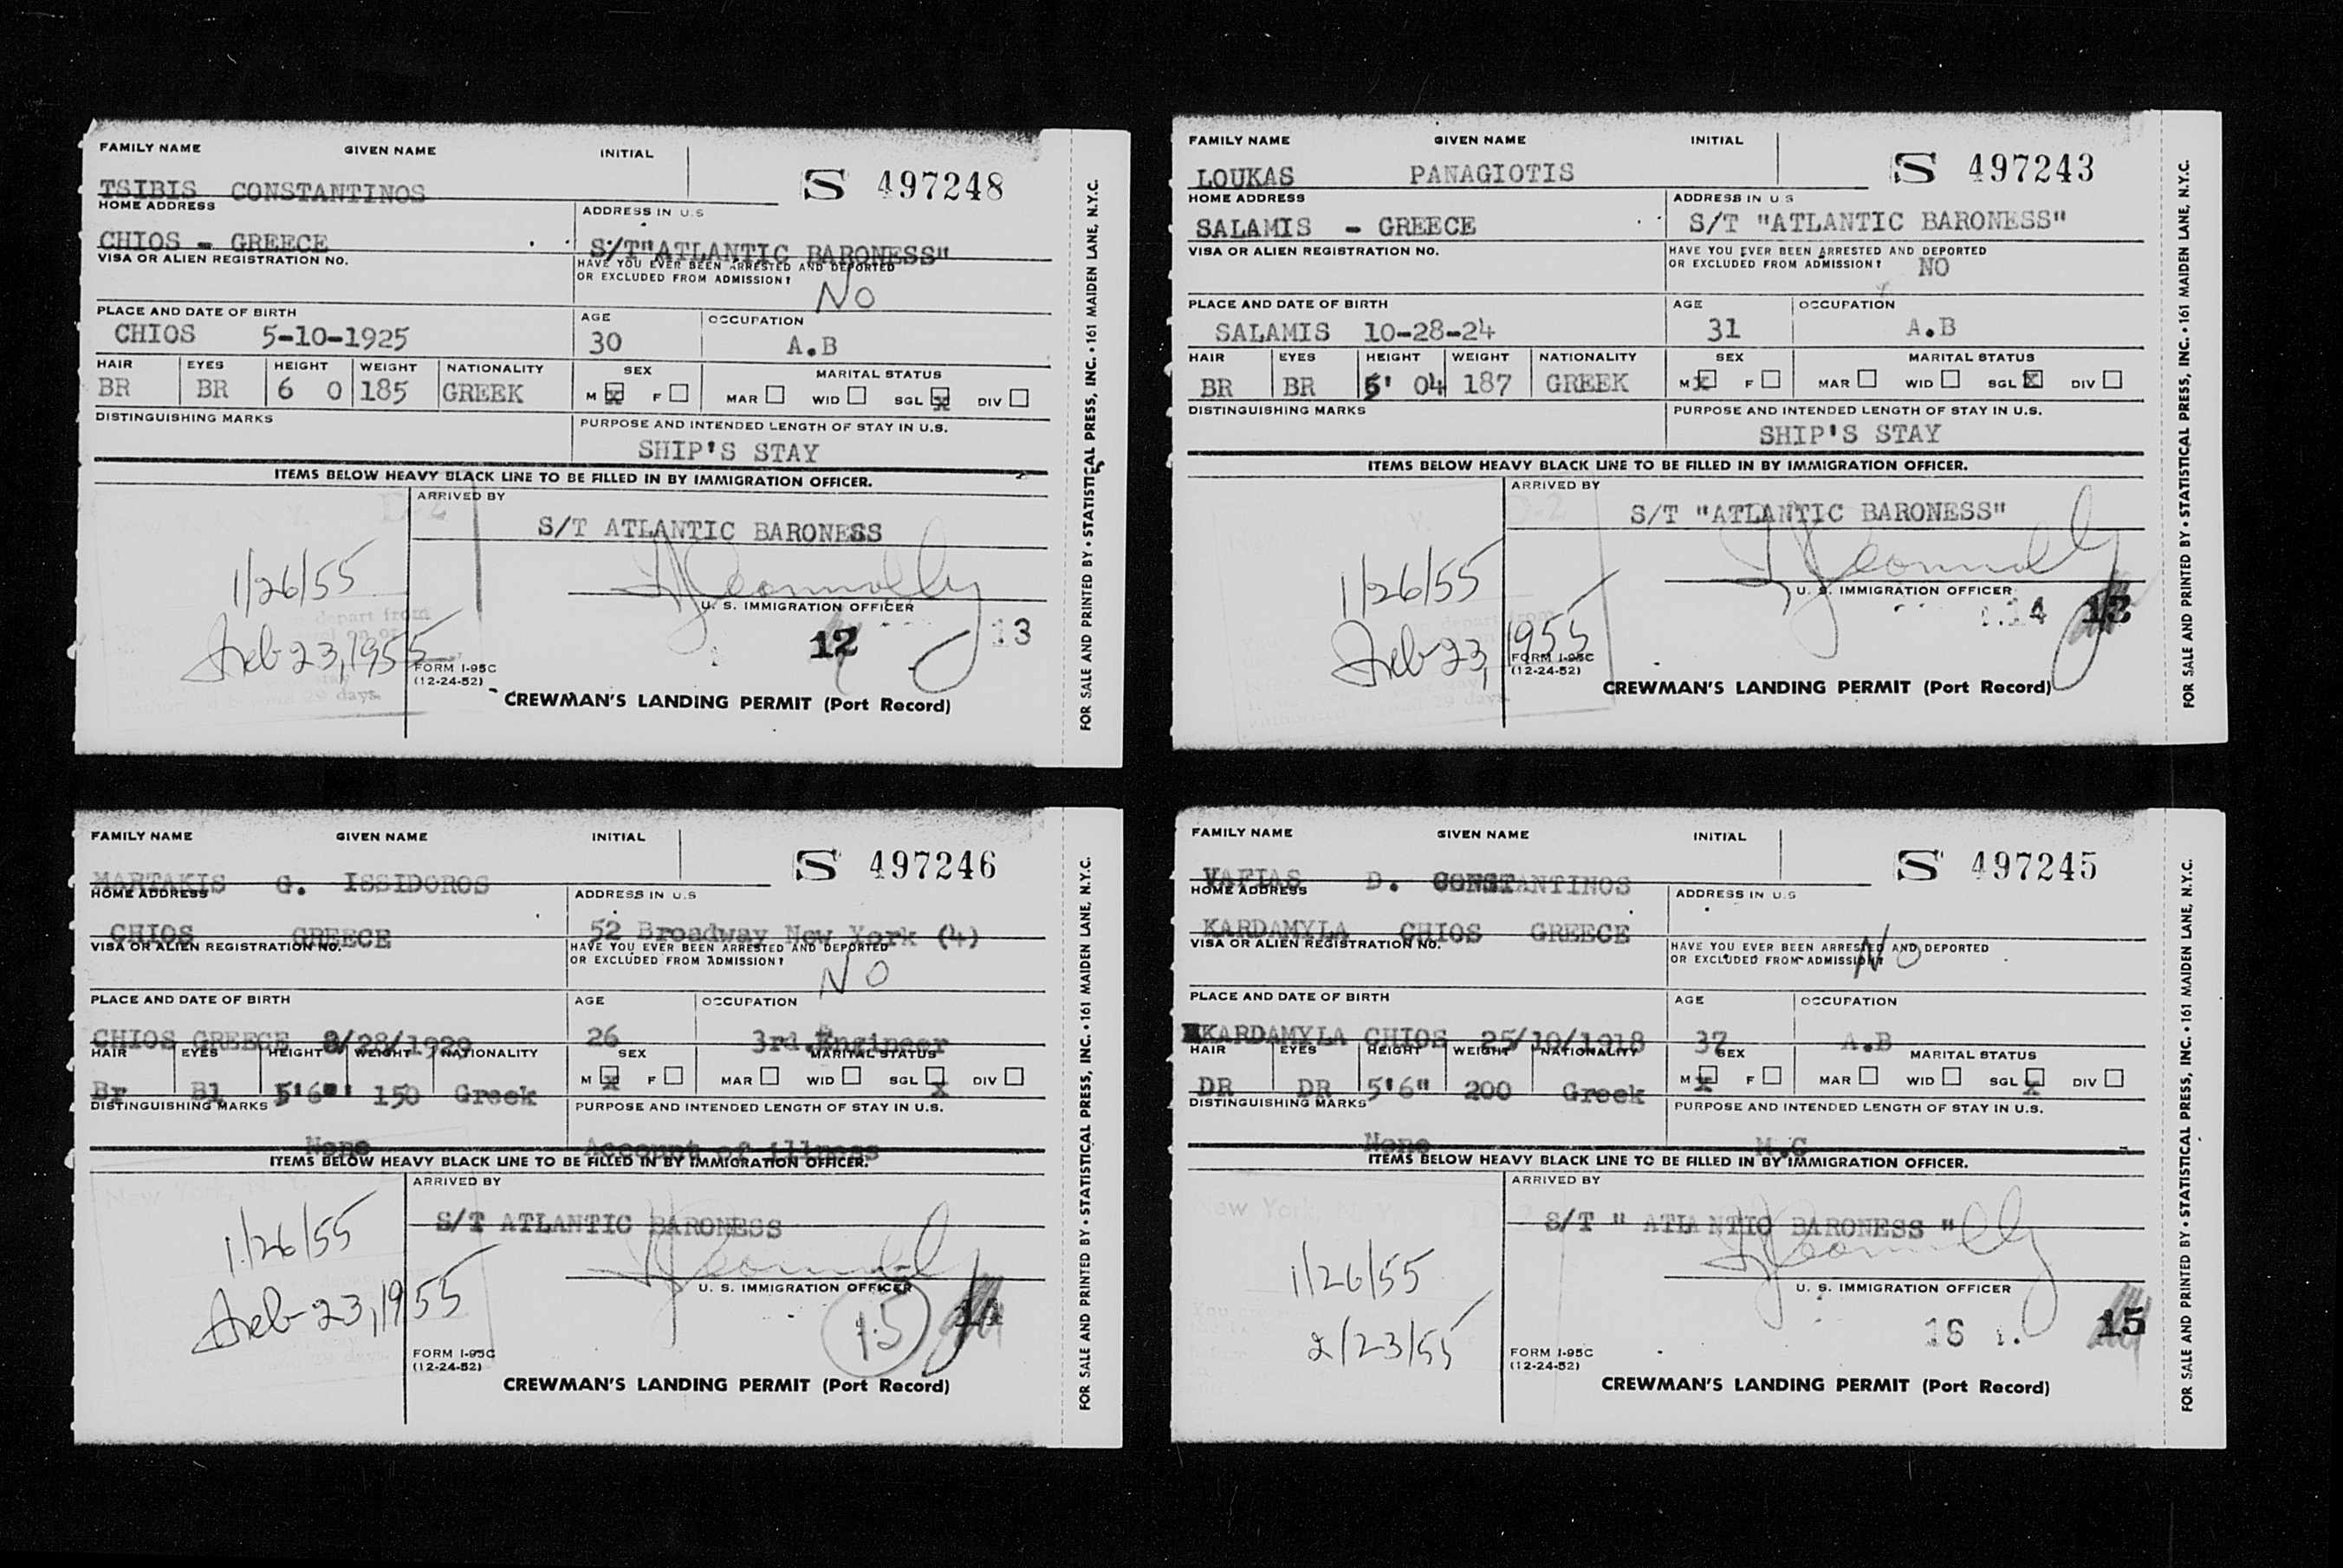 FAMILY NAME GIVEN NAME INITIAL
S 497248
TSIBIS CONSTANTINOS
HOME ADDRESS ADDRESS IN U.S
CHIOS - GREECE S/T"ATLANTIC BARONESS"
VISA OR ALIEN REGISTRATION NO. HAVE YOU EVER BEEN ARRESTED AND DEPORTED
OR EXCLUDED FROM ADMISSION?
NO
PLACE AND DATE OF BIRTH AGE OCCUPATION
CHIOS 5-10-1925 30 A.B
HAIR EYES HEIGHT WEIGHT NATIONALITY SEX MARITAL STATUS
BR BR 6 0 185 GREEK M X F MAR WID SGL X DIV
DISTINGUISHING MARKS PURPOSE AND INTENDED LENGTH OF STAY IN U.S.
SHIP'S STAY
ITEMS BELOW HEAVY BLACK LINE TO BE FILLED IN BY IMMIGRATION OFFICER.
ARRIVED BY
S/T ATLANTIC BARONESS
1/26/55
U. S. IMMIGRATION OFFICER
12 13
Feb 23, 1955
FORM I-95C
(12-24-52)
CREWMAN'S LANDING PERMIT (Port Record)
FOR SALE AND PRINTED BY • STATISTICAL PRESS, INC. • 161 MAIDEN LANE, N.Y.C.
FAMILY NAME GIVEN NAME INITIAL
S 497243
LOUKAS PANAGIOTIS
HOME ADDRESS ADDRESS IN U S
SALAMIS - GREECE S/T "ATLANTIC BARONESS"
VISA OR ALIEN REGISTRATION NO. HAVE YOU EVER BEEN ARRESTED AND DEPORTED
OR EXCLUDED FROM ADMISSION? NO
PLACE AND DATE OF BIRTH AGE OCCUPATION
SALAMIS 10-28-24 31 A.B
HAIR EYES HEIGHT WEIGHT NATIONALITY SEX MARITAL STATUS
BR BR 5' 04 187 GREEK M X F MAR WID SGL X DIV
DISTINGUISHING MARKS PURPOSE AND INTENDED LENGTH OF STAY IN U.S.
SHIP'S STAY
ITEMS BELOW HEAVY BLACK LINE TO BE FILLED IN BY IMMIGRATION OFFICER.
ARRIVED BY
S/T "ATLANTIC BARONESS"
1/26/55
U. S. IMMIGRATION OFFICER
14 13
Feb 23, 1955
FORM I-95C
(12-24-52)
CREWMAN'S LANDING PERMIT (Port Record)
FOR SALE AND PRINTED BY • STATISTICAL PRESS, INC. • 161 MAIDEN LANE, N.Y.C.
FAMILY NAME GIVEN NAME INITIAL
S 497246
MARTAKIS G. ISSIDOROS
HOME ADDRESS ADDRESS IN U.S
CHIOS GREECE 52 Broadway New York (4)
VISA OR ALIEN REGISTRATION NO. HAVE YOU EVER BEEN ARRESTED AND DEPORTED
OR EXCLUDED FROM ADMISSION?
NO
PLACE AND DATE OF BIRTH AGE OCCUPATION
CHIOS GREECE 8/28/1929 26 3rd.Engineer
HAIR EYES HEIGHT WEIGHT NATIONALITY SEX MARITAL STATUS
Br Bl 5'6" 150 Greek M X F MAR WID SGL X DIV
DISTINGUISHING MARKS PURPOSE AND INTENDED LENGTH OF STAY IN U.S.
None Account of illness
ITEMS BELOW HEAVY BLACK LINE TO BE FILLED IN BY IMMIGRATION OFFICER.
ARRIVED BY
S/T ATLANTIC BARONESS
1/26/55
U. S. IMMIGRATION OFFICER
15 14
Feb 23, 1955
FORM I-95C
(12-24-52)
CREWMAN'S LANDING PERMIT (Port Record)
FOR SALE AND PRINTED BY • STATISTICAL PRESS, INC. • 161 MAIDEN LANE, N.Y.C.
FAMILY NAME GIVEN NAME INITIAL
S 497245
VAFIAS D. CONSTANTINOS
HOME ADDRESS ADDRESS IN U.S
KARDAMYLA CHIOS GREECE
VISA OR ALIEN REGISTRATION NO. HAVE YOU EVER BEEN ARRESTED AND DEPORTED
OR EXCLUDED FROM ADMISSION? NO
PLACE AND DATE OF BIRTH AGE OCCUPATION
KARDAMYLA CHIOS 25/10/1918 37 A.B
HAIR EYES HEIGHT WEIGHT NATIONALITY SEX MARITAL STATUS
DR DR 5'6" 200 Greek M X F MAR WID SGL X DIV
DISTINGUISHING MARKS PURPOSE AND INTENDED LENGTH OF STAY IN U.S.
None M.C
ITEMS BELOW HEAVY BLACK LINE TO BE FILLED IN BY IMMIGRATION OFFICER.
ARRIVED BY
S/T " ATLANTIC BARONESS "
1/26/55
U. S. IMMIGRATION OFFICER
16 15
2/23/55
FORM I-95C
(12-24-52)
CREWMAN'S LANDING PERMIT (Port Record)
FOR SALE AND PRINTED BY • STATISTICAL PRESS, INC. • 161 MAIDEN LANE, N.Y.C.